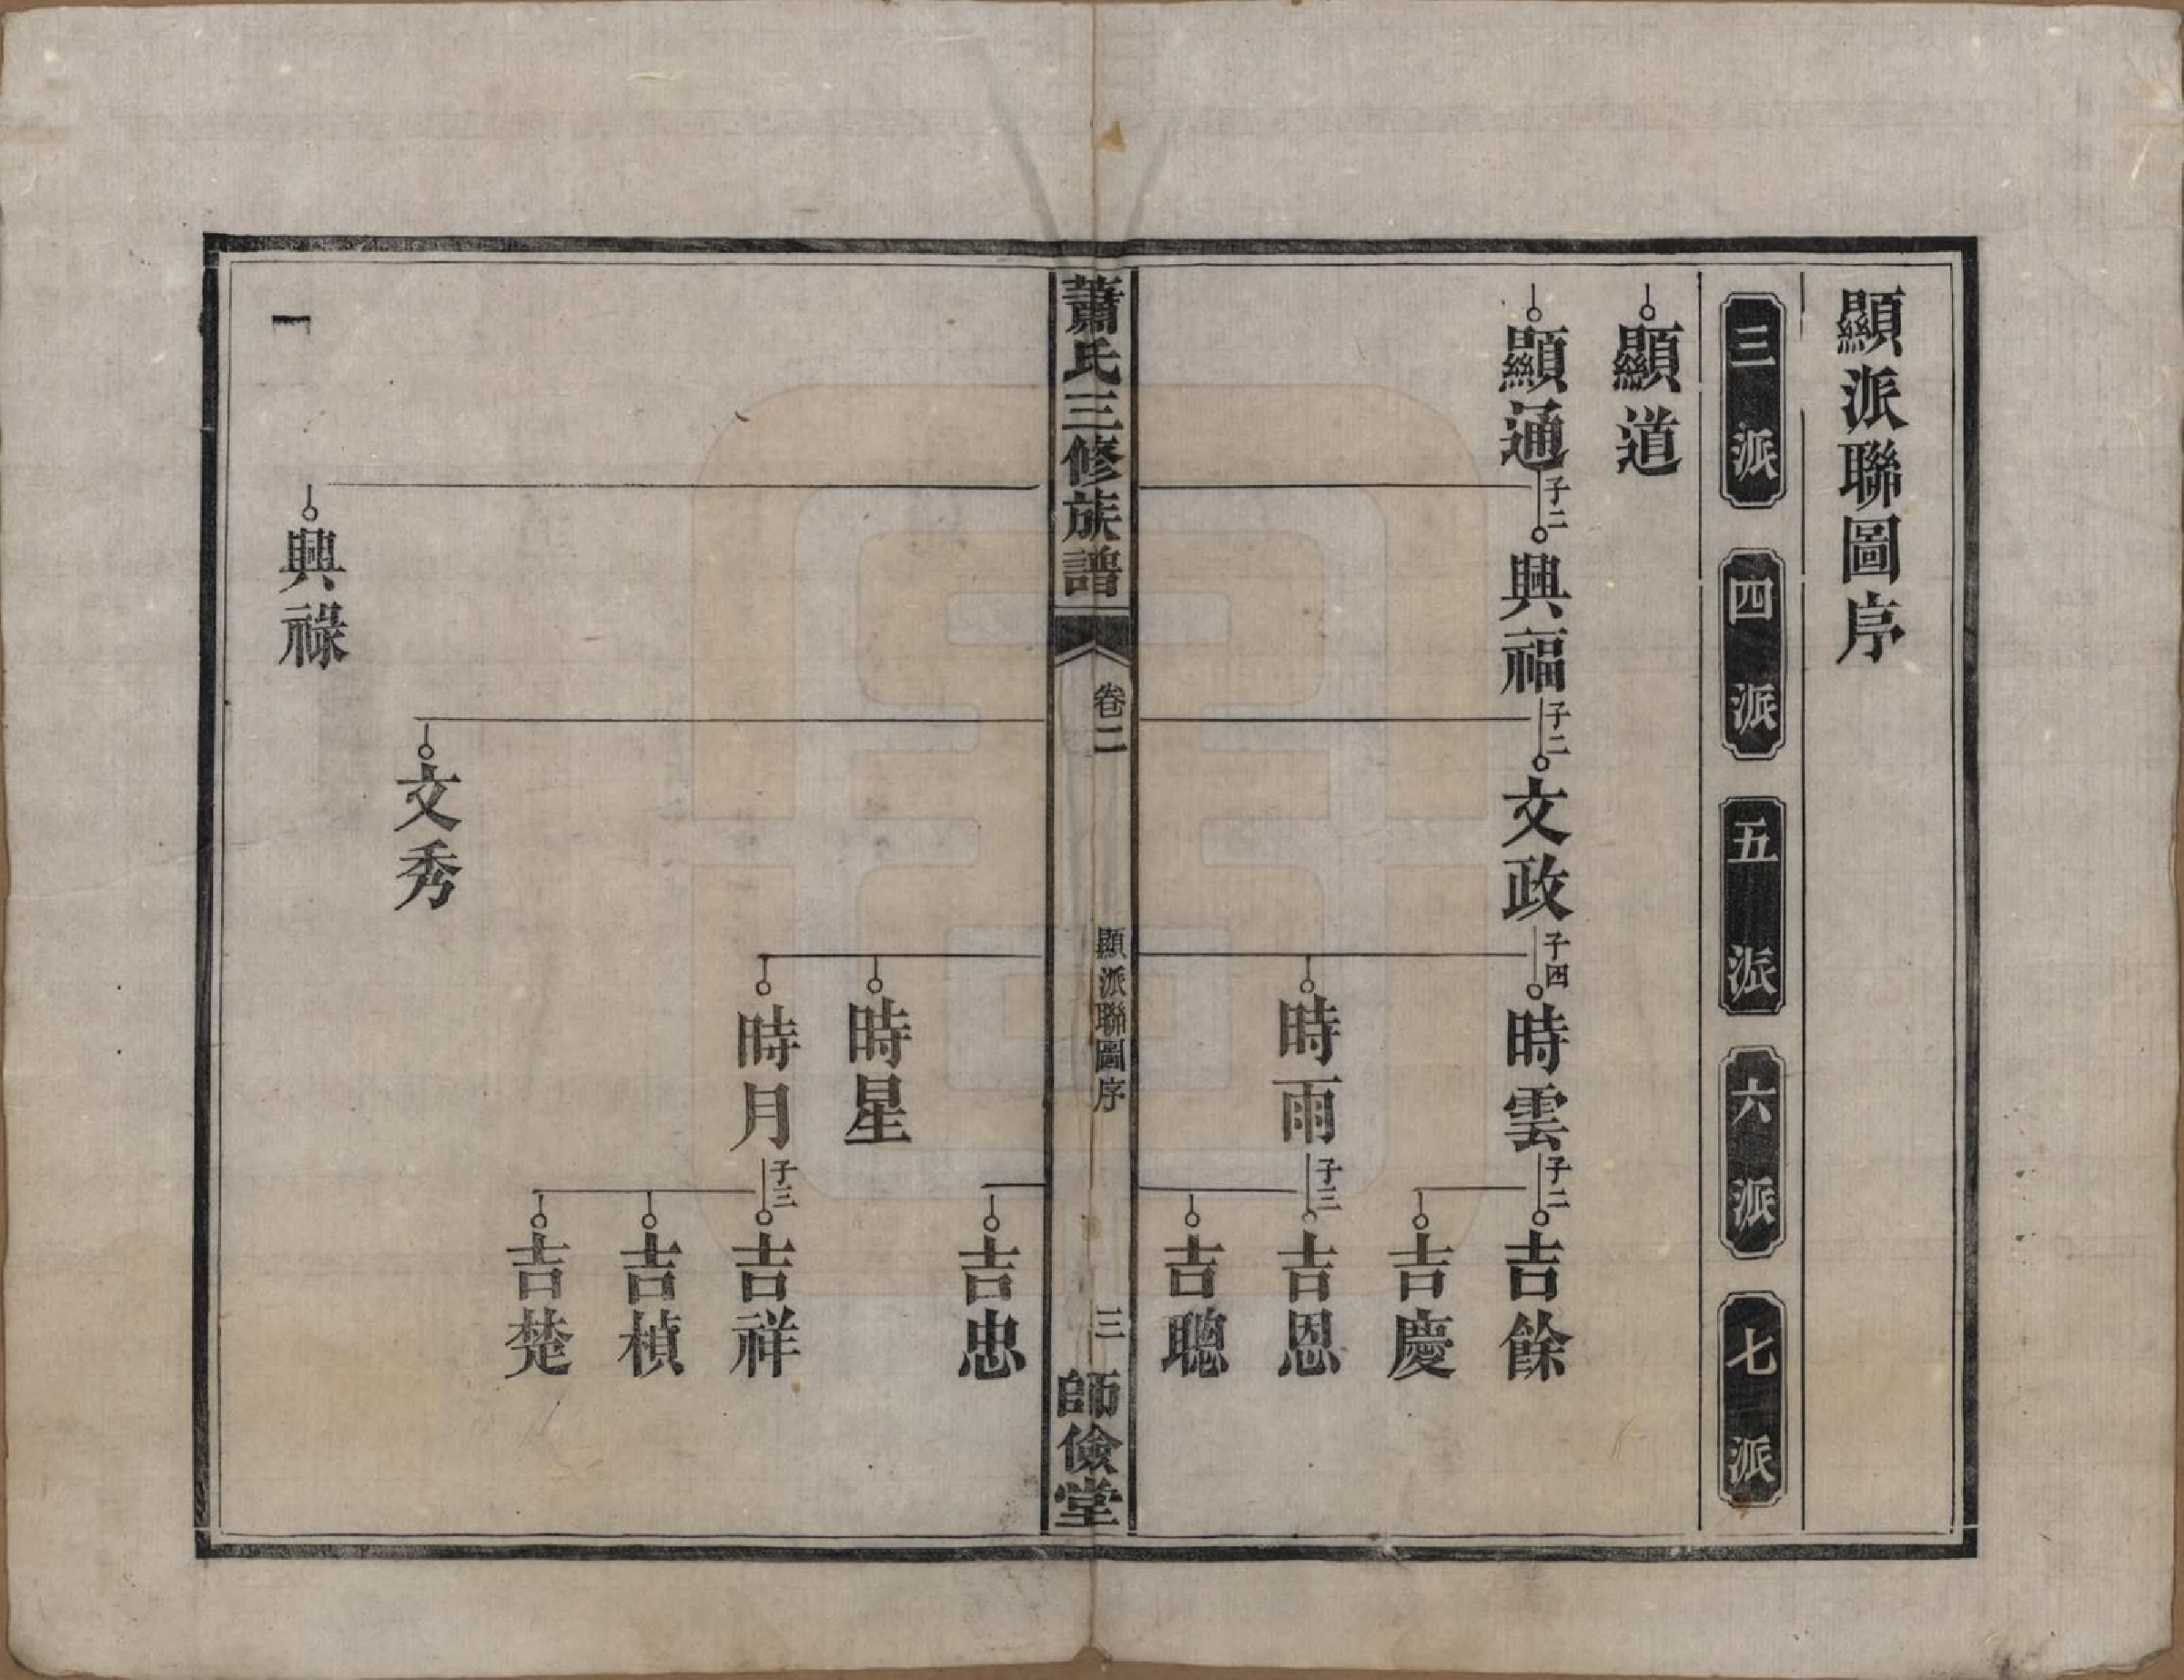 顯派聯圖序
三派
四派
五派
六派
七派
顯道
顯通
子二
興福
子二
文政
子四
時雲
子二
吉餘
吉慶
時雨
子三
吉恩
吉聰
蕭氏三修族譜
卷二
顯派聯圖序
三
師儉堂
吉忠
時星
時月
子三
吉祥
吉楨
吉楚
文秀
興祿